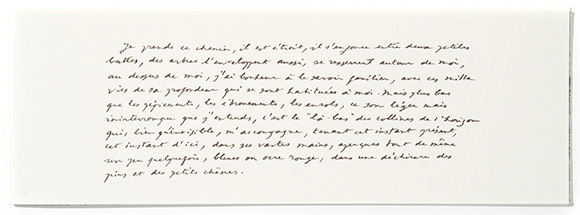 Je prends ce chemin, il est étroit, il s'enfonce entre deux petites
buttes, des arbres l'enveloppent aussi, se resserrent autour de moi,
au dessus de moi, j'ai bonheur à le savoir familier, avec ces mille
vies de sa profondeur qui se sont habituées à moi. Mais plus bas
que les pépiements, les ébrouements, les envols, ce son léger mais
ininterrompu que j'entends, c'est le "là-bas" des collines de l'horizon
qui, bien qu'invisible, m'accompagne, tenant cet instant présent,
cet instant d'ici, dans ses vastes mains, aperçues tout de même
un peu quelquefois, bleues ou ocre rouge, dans une déchirure des
pins et des petits chênes.